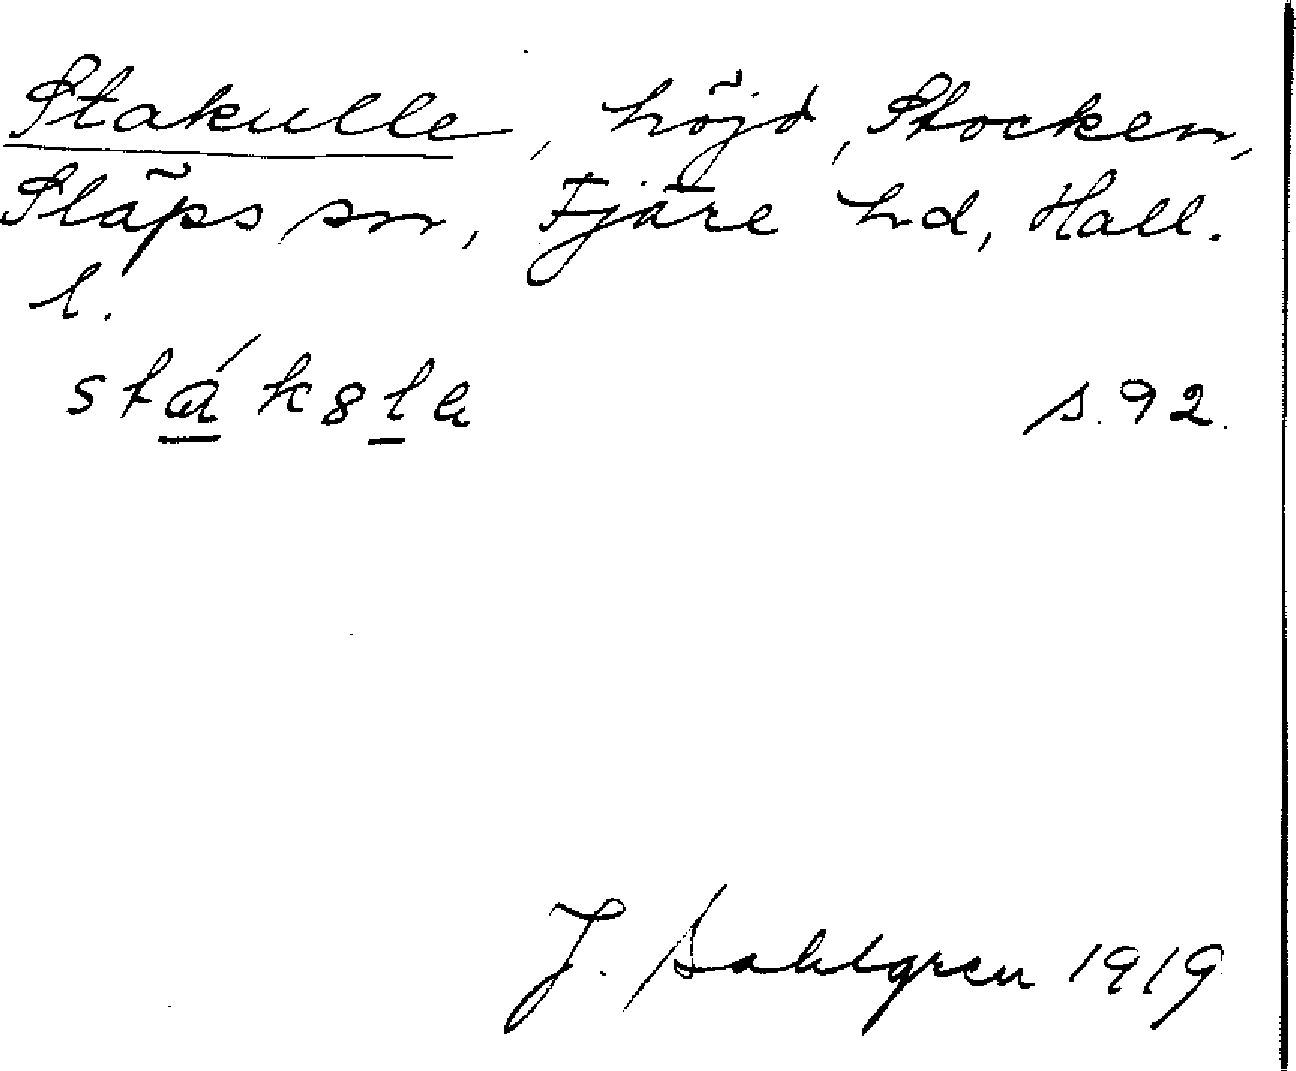 Stakulle, höjd, Stocken,
Släps sn, Fjäre hd, Hall.
l.
s. 92.
J. Sahlgren 1919